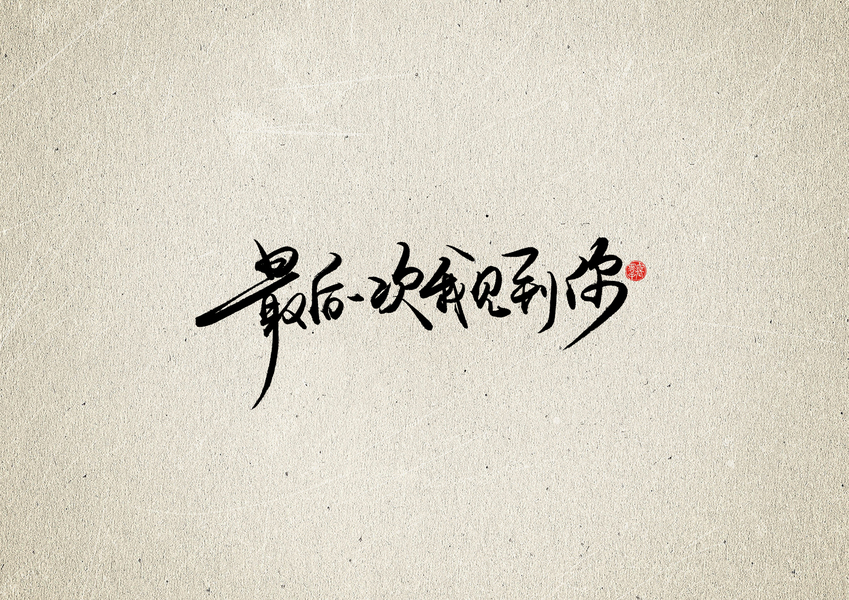 最后一次我见到你